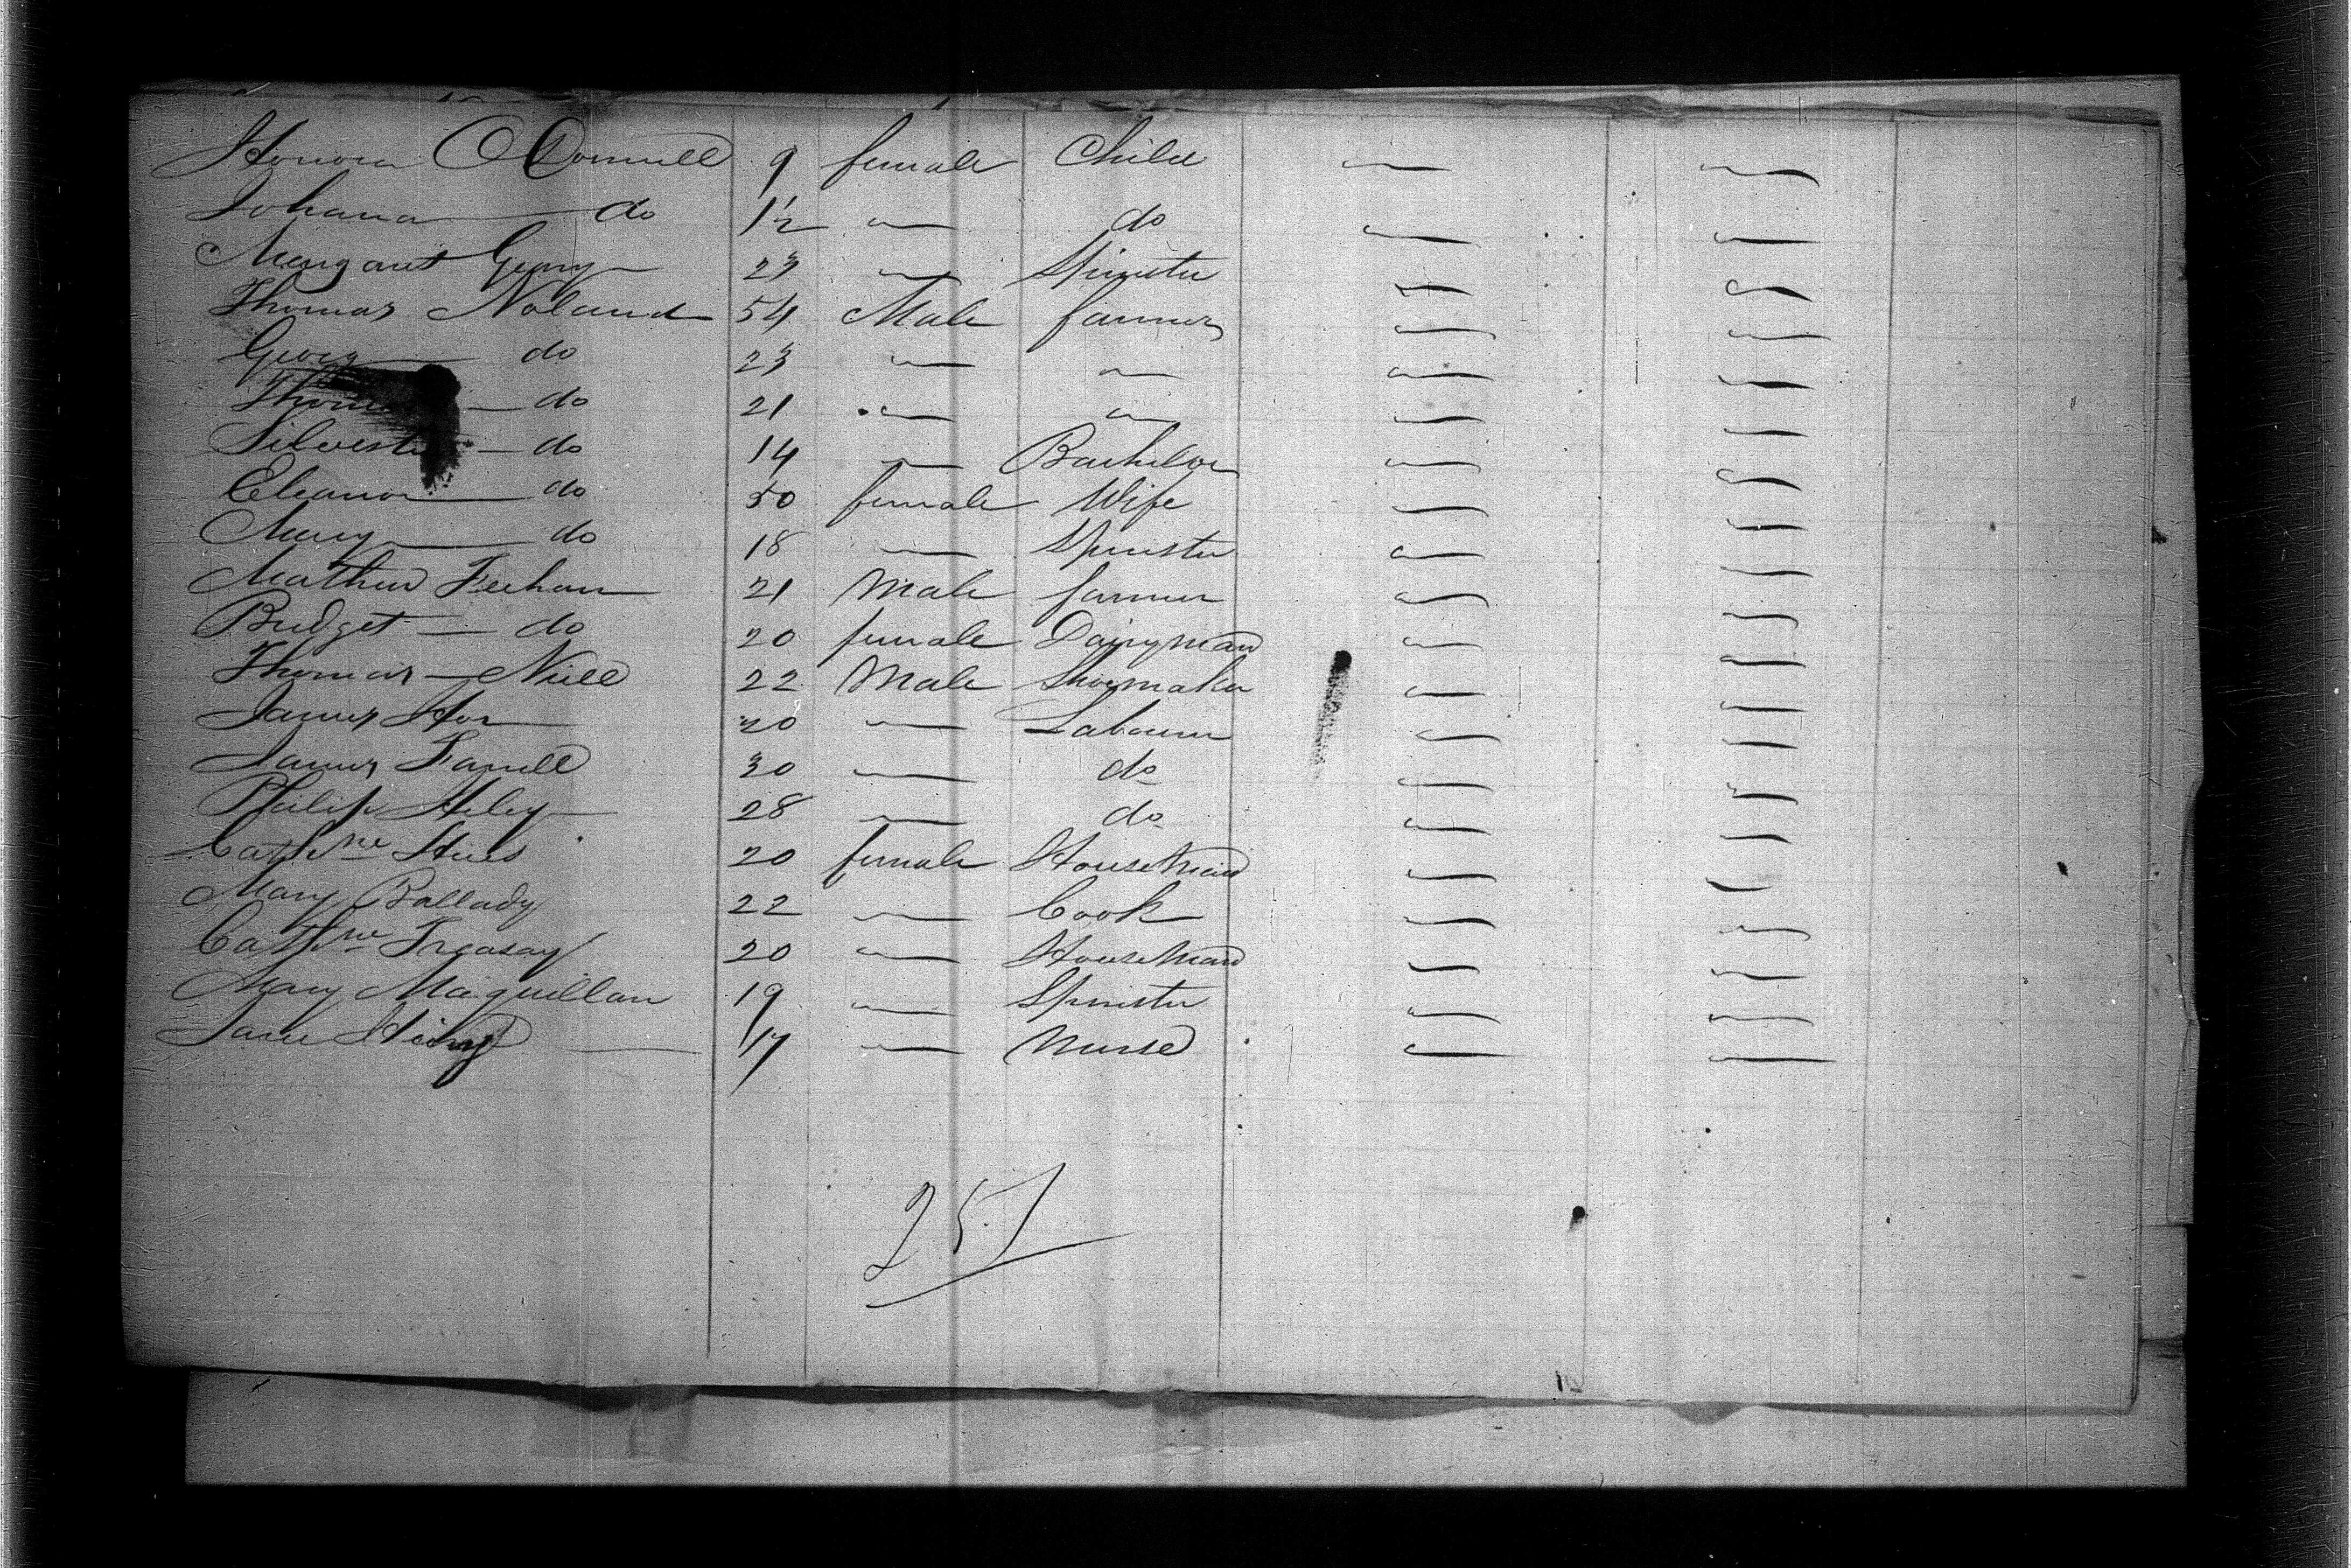 Honora O Donnell 9 female Child
Johana do 1½ do
Margaret 23 Spinster
Thomas Noland 54 Male farmer
Georg do 23
Thomas do 21
Silvester do 14 Bachelor
Eleanor do 50 female Wife
Mary do 18 Spinster
Mathew Feehan 21 Male farmer
Bridget do 20 female Dairymaid
Thomas Niell 22 Male Shoemaker
James 20 Labourer
James Farrell 30 do
Philip Heley 28 do
Cathne 20 female HouseMaid
Mary Ballady 22 Cook
Cathne Treasay 20 HouseMaid
Mary Maguillan 19 Spinster
Jane 17 Nurse
251